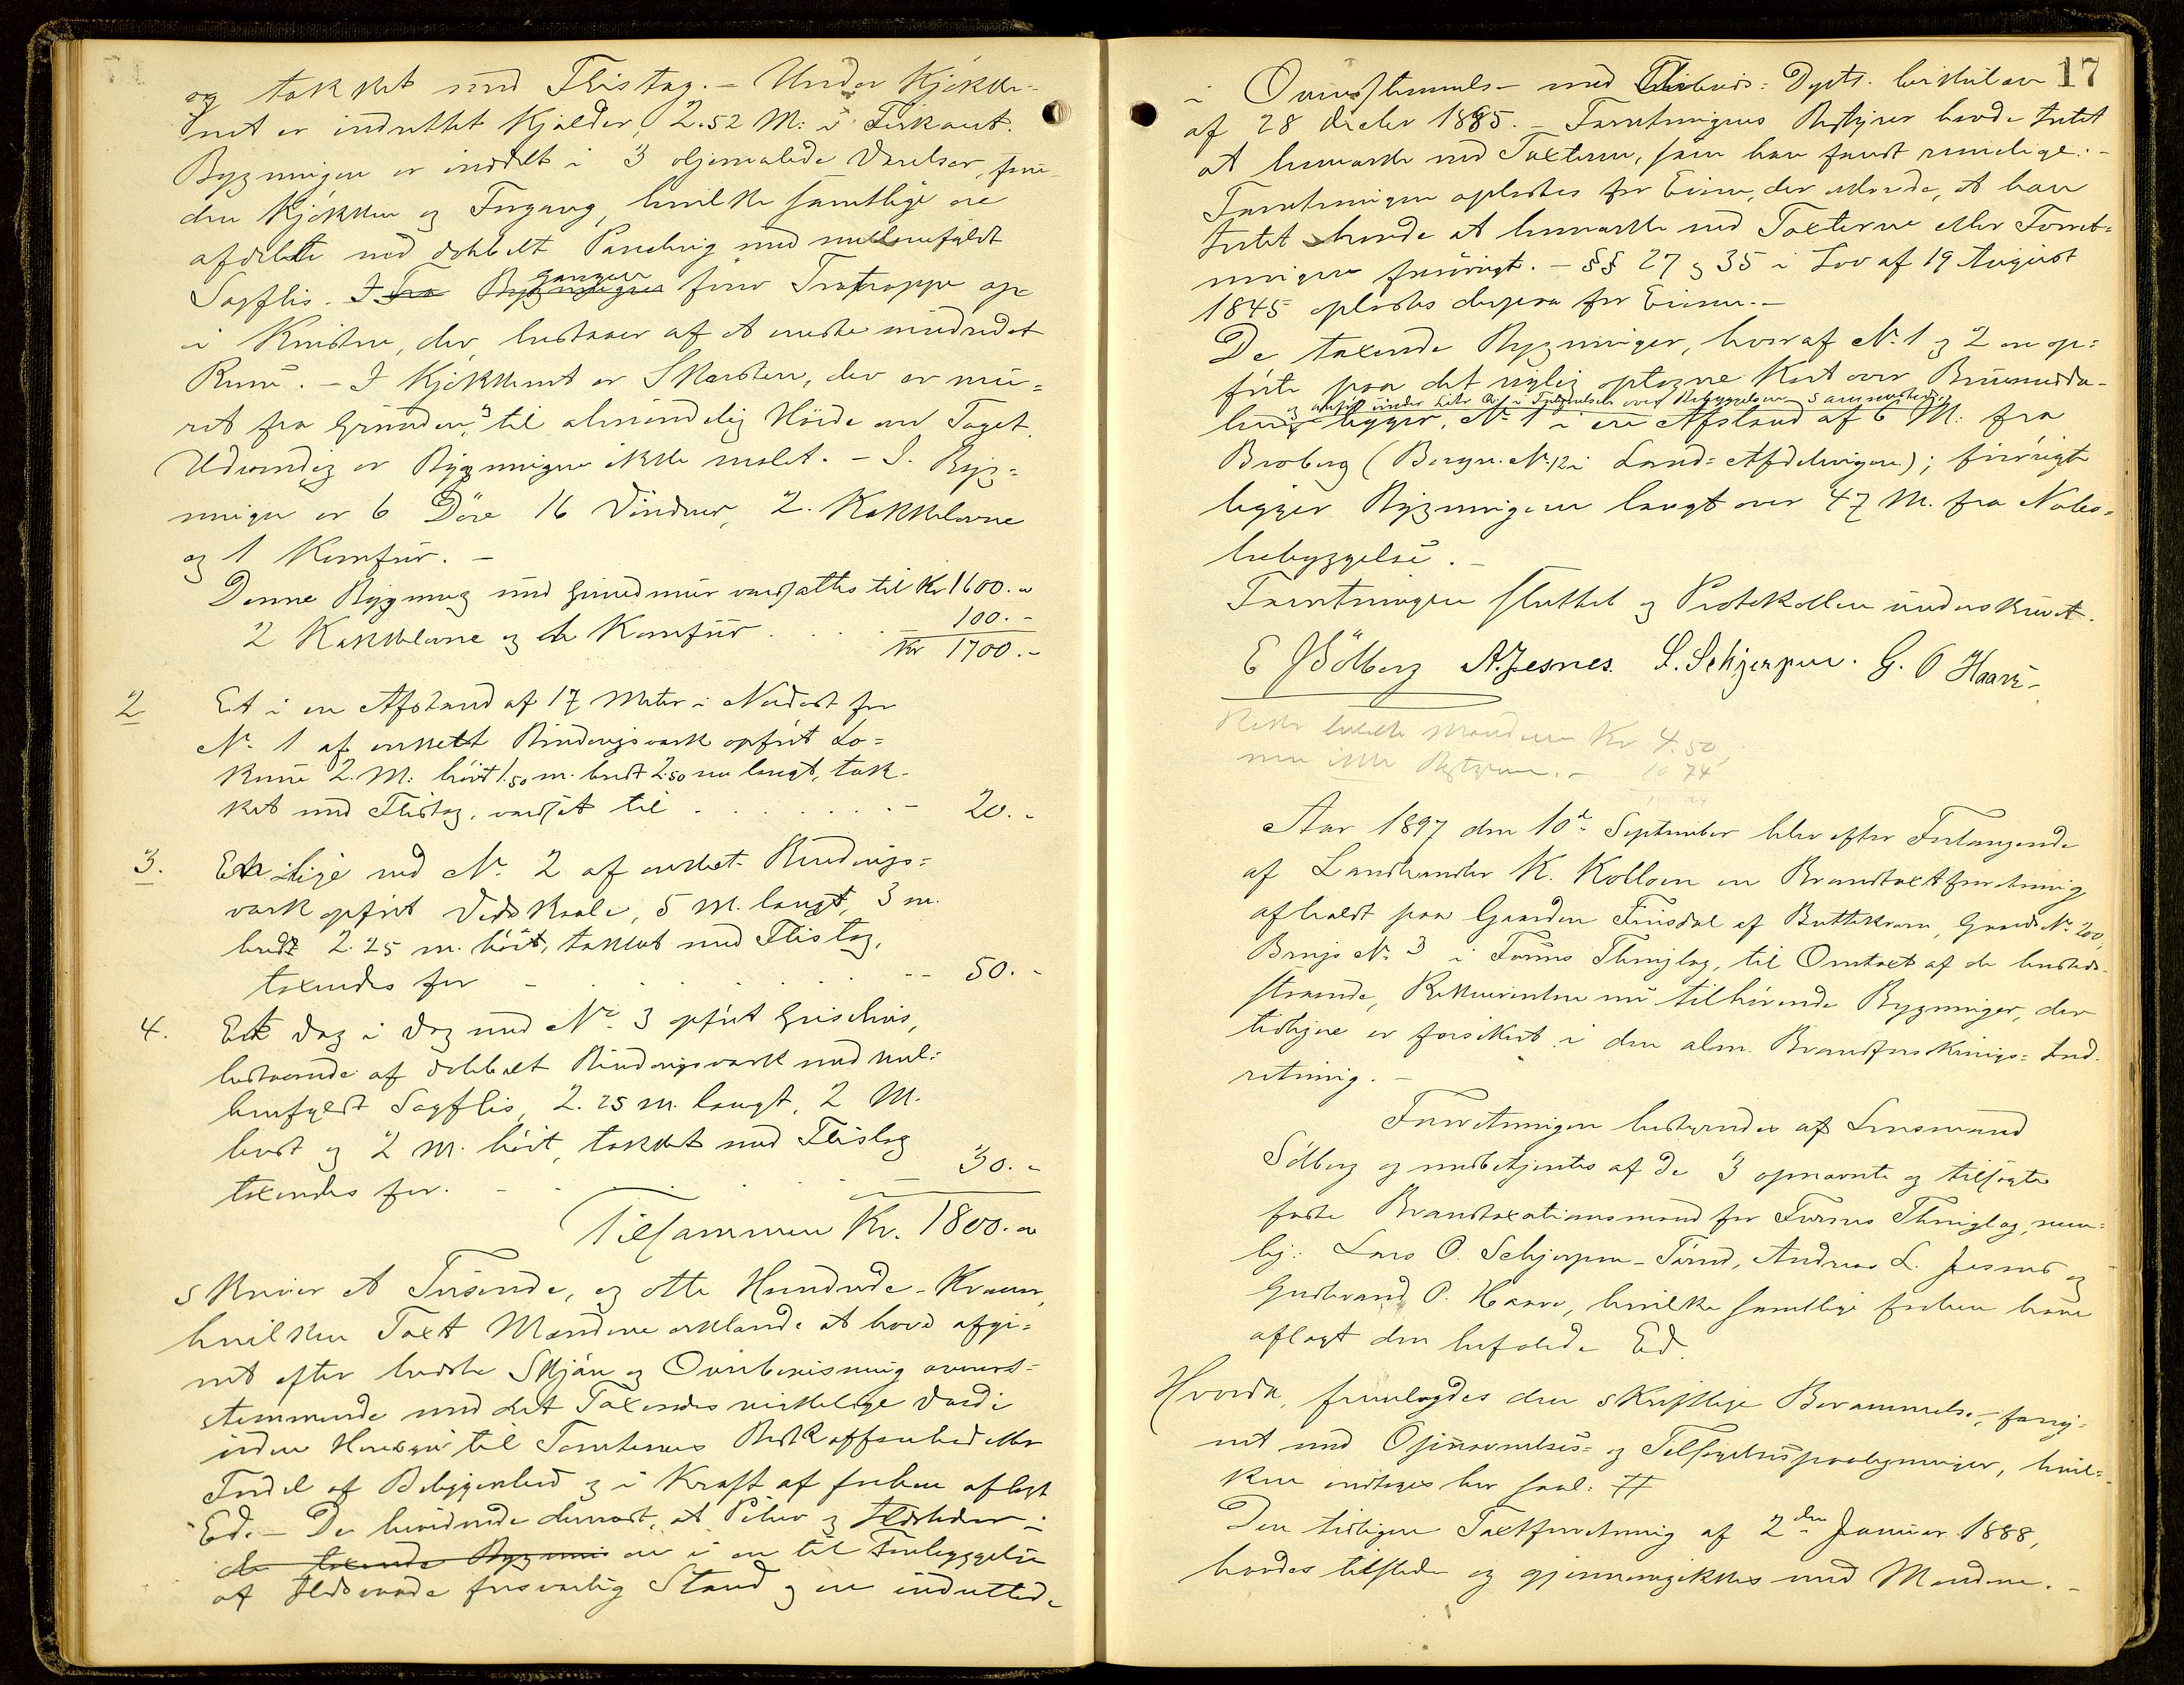 og tækket med Flistag. - Under Kjökke-
net er indrettet Kjælder, 2.52 M: i Firkant.
Bygningen er inddelt i 3 oljemalede Værelser, foru-
den Kjökken og Indgang, hvilke samtlige ere
afdelte med dobbelt Paneling med mellemfyldt
Sagflis. I Fra Bygningen Gangen förer Trætrappe op
i Kvisten, der bestaaer af et eneste uindredet
Rum. - I Kjökkenet er Skorsten, der er mu-
ret fra Grunden til almindelig Höide over Taget.
Udvendig er Bygningen ikke malet. - I Byg-
ningen er 6 Döre 16 Vinduer, 2 Kakkelovne
og 1 Komfür. -
Denne Bygning med Grundmur værdsattes til Kr 1600. "
2 Kakkelovne og et Komfür . . . . 100. -
Kr 1700. -
2 Et i en Afstand af 17 Meter i Nordost for
No 1 af enkelt Bindingsværk opfört Lo-
kum 2. M: höit 1.50 m. bredt 2.50 m langt, tæk-
ket med Flistag, værdsat til . . . . . - 20. -
3. En lige ved No 2 af enkelt Bindings-
værk opfört Vedskaale, 5 M. langt, 3 m.
bredt 2.25 m. höit, tækket med Flistag,
taxeredes for - . . . . . -- 50. -
4. Et Væg i Væg med No 3 opfört Grisehus,
bestaaende af dobbelt Bindingsværk med mel-
lemfyldt Sagflis, 2.25 m. langt, 2 M.
bredt og 2 M. höit, tækket med Flistag
taxeredes for. - . . . . . - 30. -
Tilsammen Kr. 1800. "
skriver et Tusende, og otte Hundrede - Kroner,
hvilken Taxt Mændene erklærede at have afgi-
vet efter bedste Skjön og Overbevisning overens-
stemmende med det Taxeredes virkelige Værdi
uden Hensyn til Tomternes Beskaffenhed eller
Fordel af Beliggenhed og i Kraft af forhen aflagt
Ed. - De bevidnede dernæst, at Piber og Ildsteder i
de taxerede Bygninger ere i en til Forebyggelse
af Ildsvaade forsvarlig Stand og ere indrettede
17
i Overensstemmelse med Dpts. Cirkulære
af 28 Decbr 1885. - Forretningens Bestyrer havde Intet
at bemærke ved Taxterne, som han fandt rimelige. -
Forretningen oplæstes for Eieren, der erklærede, at have
Intet at bemærke ved Taxterne eller Forret-
ningen forövrigt. - §§ 27 og 35 i Lov af 19 August
1845 oplæstes derpaa for Eieren. -
De taxerede Bygninger, hvoraf No 1 og 2 ere op-
förte paa det nylig optagne Kort over Brummedda-
len og anfört under Litr i Fortegnelsen over Bebyggelsen sammesteds,
ligger, No 1 i en Afstand af 6 M: fra
Broberg (Bergn. No 12 i Land-Afdelingen); forövrigt
ligger Bygningerne langt over 47 M. fra Nabo-
bebyggelse. -
Forretningen sluttet og Protokollen underskrevet.
E Sölberg A. Jesnes. L. Schjerpen. G. O Haave -
Kr 4.50
men ikke Bestyreren. - 10 74
Aar 1897 den 10de September blev efter Forlangende
af Landhandler K. Kolloen en Brandtaxtforretning
afholdt paa Gaarden Finsdal af Buttekvern, Gaards No 200,
Brugs No 3 i Furnes Thinglag, til Omtaxt af de herteds-
staaende, Rekvirenten nu tilhörende Bygninger, der
tidligere er forsikret i den alm. Brandforsikrings-Ind-
retning. -
Forretningen bestyredes af Lensmand
Sölberg og medbetjentes af de 3 opnævnte og tilsagte
faste Brandtaxationsmænd for Furnes Thinglag, nem-
lig: Lars O. Schjerpen - Tjernd, Andreas L. Jesnes og
Gudbrand O. Haave, hvilke samtlige forhen have
aflagt den befalede Ed.
Hvorda, fremlagdes den skriftlige Berammelse, forsy-
net med Opnævnelses- og Tilsigelsespaategninger, hvil-
ken indtages her saal: #
Den tidligere Taxtforretning af 2den Januar 1888,
havdes tilstede og gjennemgikkes med Mændene. -